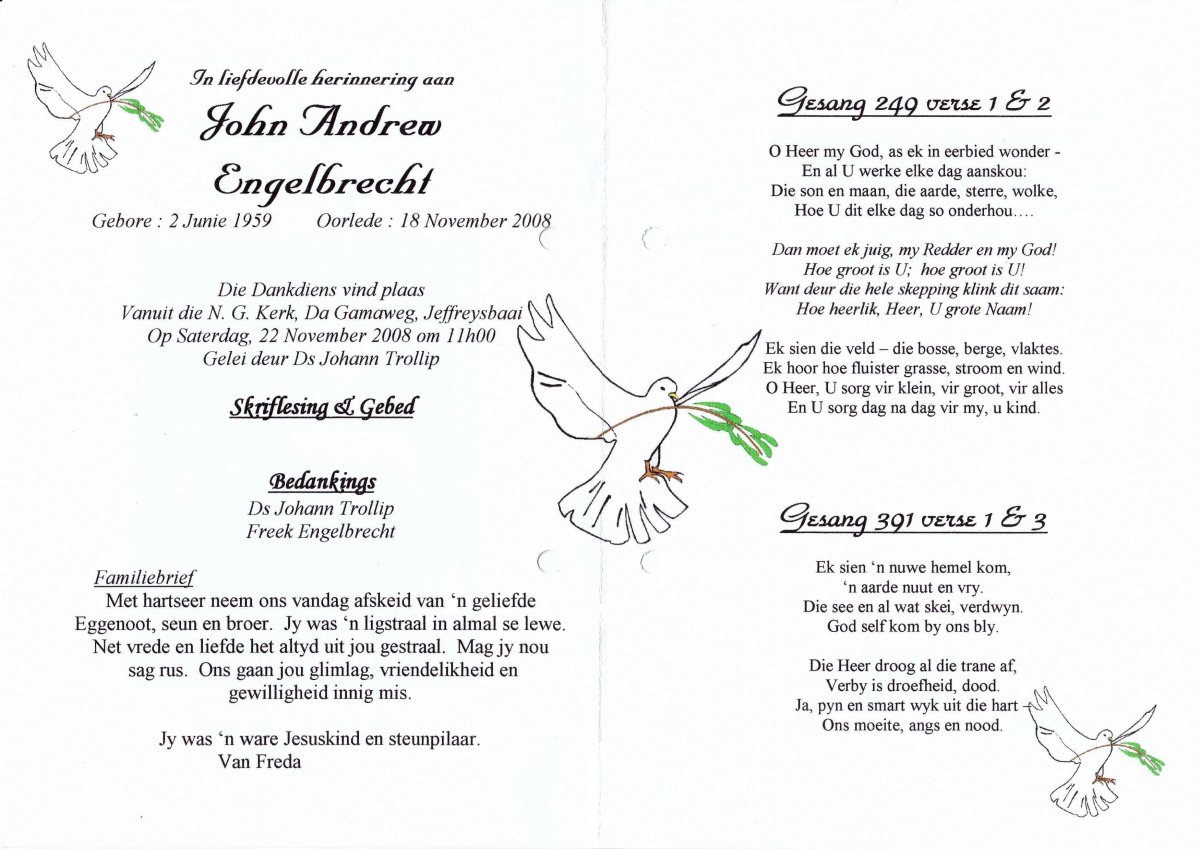 In liefdevolle herinnering aan
John Andrew
Engelbrecht
Gebore : 2 Junie 1959 Oorlede : 18 November 2008
Die Dankdiens vind plaas
Vanuit die N. G. Kerk, Da Gamaweg, Jeffreysbaai
Op Saterdag, 22 November 2008 om 11h00
Gelei deur Ds Johann Trollip
Skriflesing & Gebed
Bedankings
Ds Johann Trollip
Freek Engelbrecht
Familiebrief
Met hartseer neem ons vandag afskeid van ‘n geliefde
Eggenoot, seun en broer. Jy was ‘n ligstraal in almal se lewe.
Net vrede en liefde het altyd uit jou gestraal. Mag jy nou
sag rus. Ons gaan jou glimlag, vriendelikheid en
gewilligheid innig mis.
Jy was ‘n ware Jesuskind en steunpilaar.
Van Freda
Gesang 249 verse 1 & 2
O Heer my God, as ek in eerbied wonder -
En al U werke elke dag aanskou:
Die son en maan, die aarde, sterre, wolke,
Hoe U dit elke dag so onderhou….
Dan moet ek juig, my Redder en my God!
Hoe groot is U; hoe groot is U!
Want deur die hele skepping klink dit saam:
Hoe heerlik, Heer, U grote Naam!
Ek sien die veld – die bosse, berge, vlaktes.
Ek hoor hoe fluister grasse, stroom en wind.
O Heer, U sorg vir klein, vir groot, vir alles
En U sorg dag na dag vir my, u kind.
Gesang 391 verse 1 & 3
Ek sien ‘n nuwe hemel kom,
‘n aarde nuut en vry.
Die see en al wat skei, verdwyn.
God self kom by ons bly.
Die Heer droog al die trane af,
Verby is droefheid, dood.
Ja, pyn en smart wyk uit die hart –
Ons moeite, angs en nood.